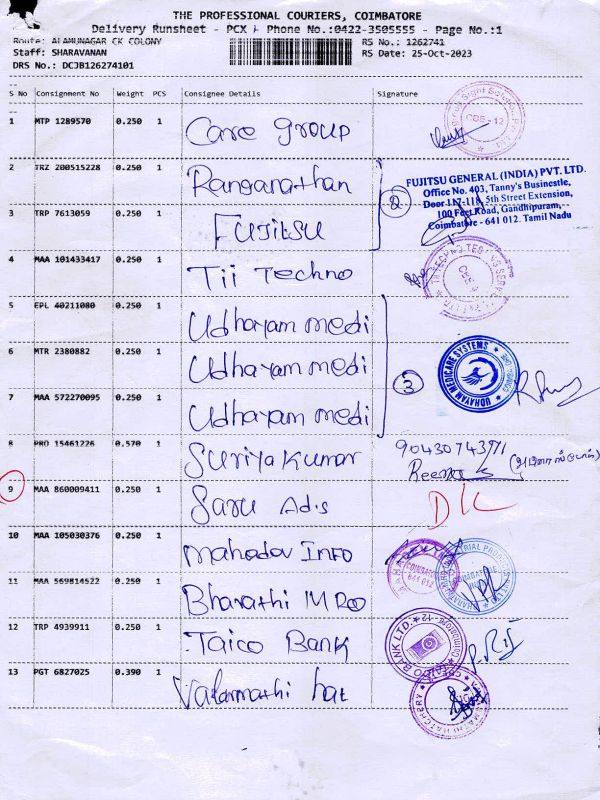 THE PROFESSIONAL COURIERS, COIMBATORE
Delivery Runsheet - PCX Phone No.:0422-3505555 - Page No.:1
Route: ALAMUNAGAR CK COLONY
RS No.: 1262741
Staff: SHARAVANAN
RS Date: 25-Oct-2023
DRS No.: DCJB126274101
S No Consignment No Weight PCS Consignee Details Signature
1 MTP 1289570 0.250 1 Care group
2 TRZ 200515228 0.250 1 Ranganathan
FUJITSU GENERAL (INDIA) PVT. LTD.
Office No. 403, Tanny's Businestle,
Door 117-118, 5th Street Extension,
100 Feet Road, Gandhipuram,
Coimbatore - 641 012. Tamil Nadu
2
3 TRP 7613059 0.250 1 Fujitsu
4 MAA 101433417 0.250 1 Tii Techno
5 EPL 40211080 0.250 1 Udhayam medi
6 MTR 2380882 0.250 1 Udhayam medi
3
UDHAYAM MEDICARE SYSTEMS
7 MAA 572270095 0.250 1 Udhayam medi
8 PRO 15461226 0.570 1 Suriya Kumar
9 MAA 860009411 0.250 1 Saru Ads DL
10 MAA 105030376 0.250 1 mahadev INFO
11 MAA 569814522 0.250 1 Bharathi M Roo
12 TRP 4939911 0.250 1 Taico Bank
13 PGT 6827025 0.390 1 Valarmathi hat